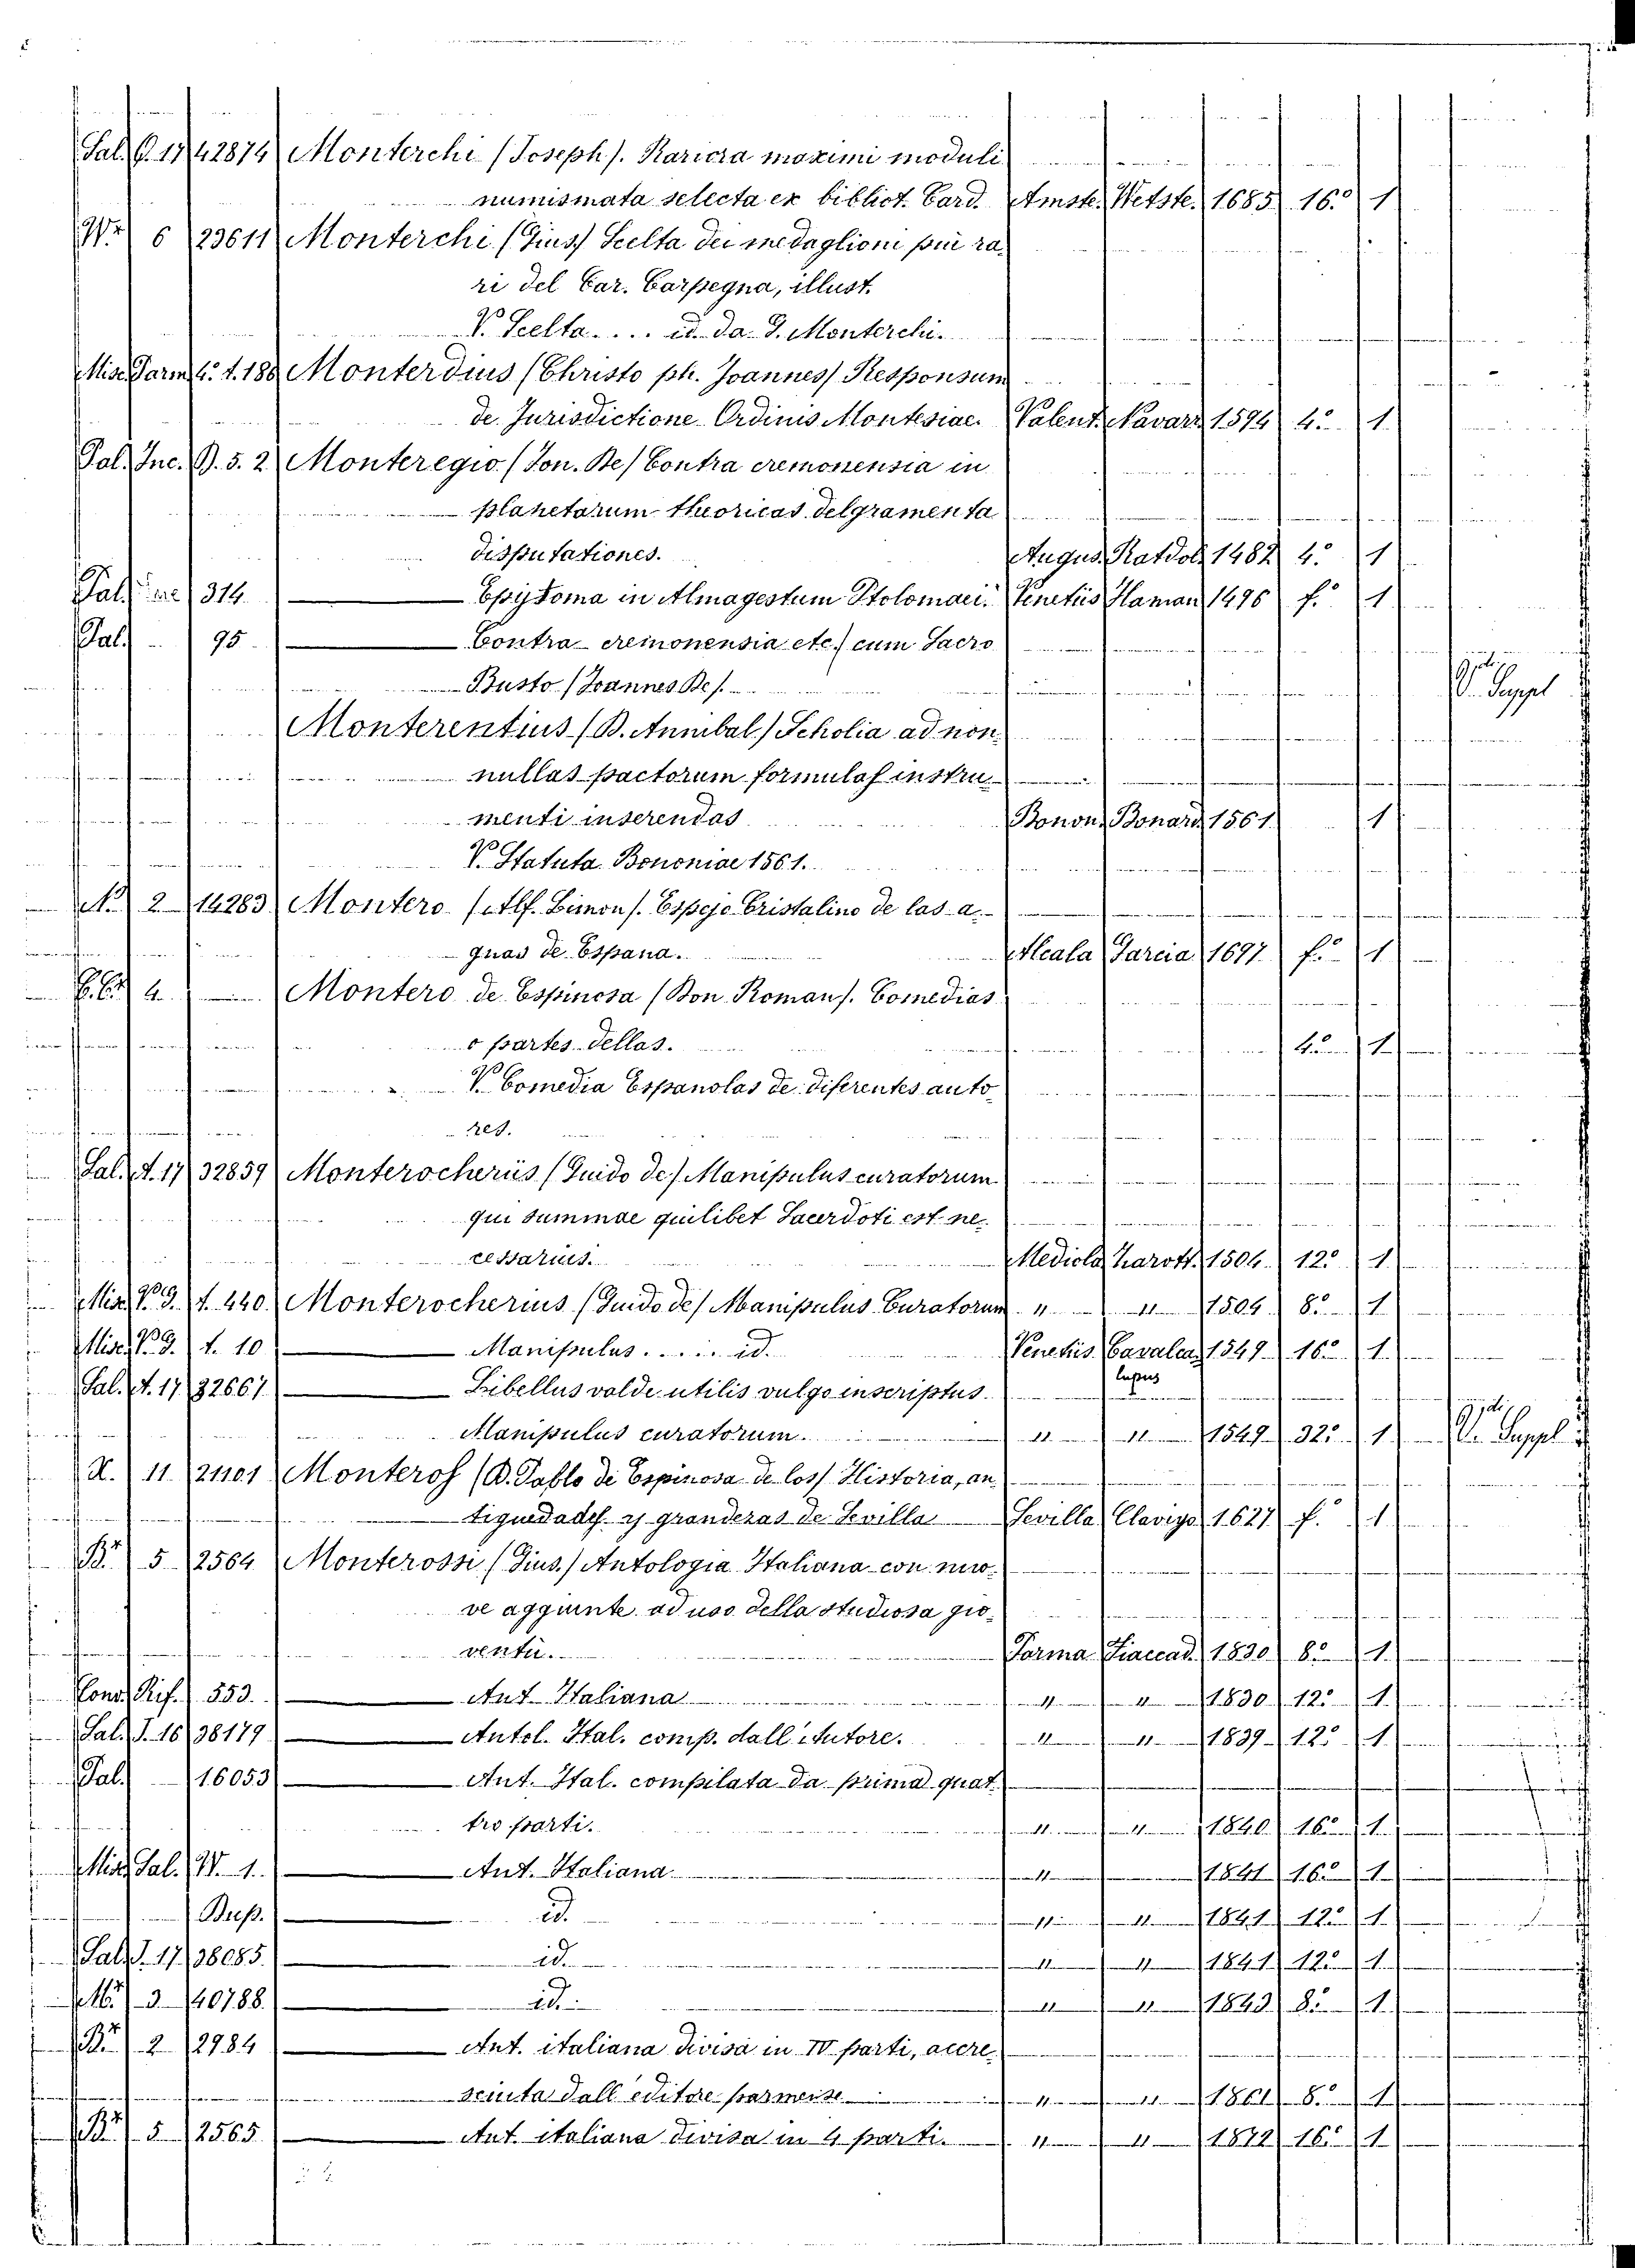 Sal. Q. 17 42874 Monterchi (Joseph). Rariora maximi moduli
numismata selecta ex bibliot. Card. Amste. Wetste. 1685 16.° 1
W.r 6 23611 Monterchi (Gius) Scelta dei medaglioni piu ra-
ri del Car. Carpegna, illust.
V. Scelta.... id. da G. Monterchi.
Misc. Parm. 4.° t. 188 Monterdius (Christo ph. Joannes) Responsum
de Jurisdictione Ordinis Montesiae. Valent. Navarr 1594 4.° 1
Pal. Inc. D. 5. 2 Monteregio (Jon. De) Contra cremonensia in
planetarum theoricas delyramenta
disputationes. Augus. Ratdol. 1482 4.° 1
Pal. Inc. 314 Epytoma in Almagestum Ptolomaei. Venetiis Haman 1496 f.° 1
Pal. 95 Contra cremonensia etc.) cum Sacro
Busto (Joannes De). V. Suppl
Monterentius (B. Annibal) Scholia ad non-
nullas pactorum formulas instru-
menti inserendas Bonon. Bonard. 1561 1
V. Statuta Bononiae 1561.
N. 2 14283 Montero (Alf. Limon). Espejo Cristalino de las a-
guas de Espana. Alcala Garcia 1697 f.° 1
4 Montero de Espinosa (Don Roman). Comedias
o partes dellas. 4.° 1
V. Comedia Espanolas de diferentes auto-
res.
Sal. A. 17 32859 Monterocheriis (Guido de) Manipulus curatorum
qui summae quilibet Sacerdoti est ne-
cessarius. Mediola. Zarott. 1504 12.° 1
Misc. V. G. t. 440 Monterocherius (Guido de) Manipulus Curatorum " " 1504 8.° 1
Misc. V. G. t. 10 Manipulus..... id. Venetiis Cavalca 1549 16.° 1
lupus
Sal. A. 17 32667 Libellus valde utilis vulgo inscriptus
Manipulus curatorum. " " 1549 32.° 1 V. Suppl
X. 11 21101 Monteros (D. Pablo de Espinosa de los) Historia, an-
tiguedades y granderas de Sevilla Sevilla Clavigo 1627 f. 1
B.r 5 2564 Monterossi (Gius.) Antologia Italiana con nuo-
ve aggiunte ad uso della studiosa gio-
ventu. Parma Fiaccad. 1830 8.° 1
Cons. Rif. 553 Ant Italiana " " 1830 12.° 1
Sal. J. 16 38179 Antol. Ital. comp. dall'Autore. " " 1839 12.° 1
Pal. 16053 Ant. Ital. compilata da prima quat-
tro parti. " " 1840 16.° 1
Misc. Sal. W. 1. Ant. Italiana " 1841 16.° 1
Dup. id. " " 1841 12.° 1
Sal. J. 17 38085 id. " " 1841 12.° 1
M.r 3 40788 id. " " 1843 8.° 1
B.r 2 2984 Ant. italiana divisa in IV parti, accre-
sciuta dall editore parmense " " 1861 8.° 1
B.r 5 2565 Ant. italiana divisa in 4 parti. " " 1872 16.° 1